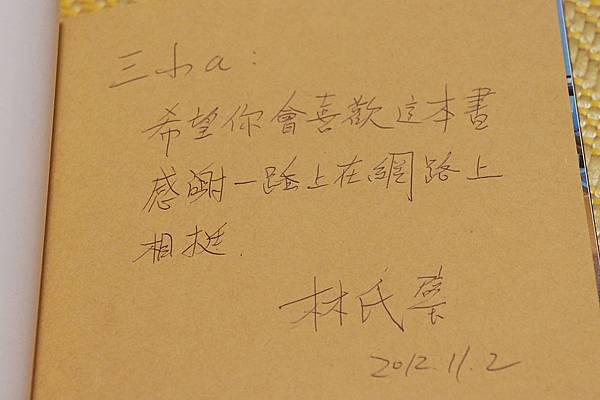 三小a：
希望你會喜歡這本書
感謝一路上在網路上
相挺.
林氏璧
2012.11.2